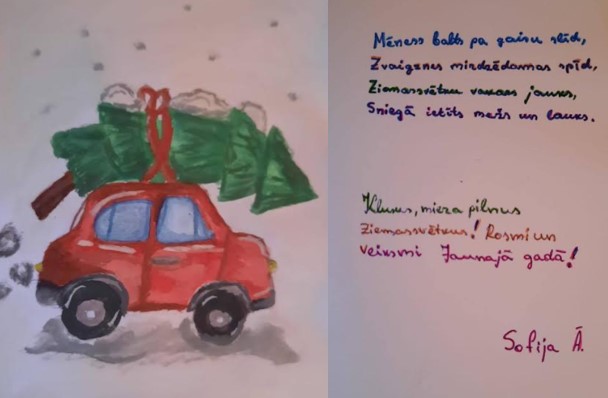 Mēness balts pa gaisu slīd,
Zvaigznes mirdzēdamas spīd,
Ziemassvētku vakars jauks,
Sniegā ietīts mežs un lauks.
Klusus, miera pilnus
Ziemassvētkus! Rosmi un
veiksmi Jaunajā gadā!
Sofija Ā.